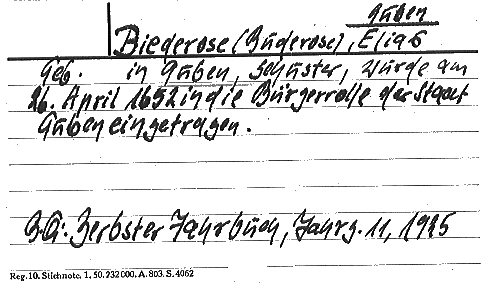 Guben
Biederose (Buderose), Elias
Geb. in Guben, Schuster, wurde am
26. April 1652 in die Bürgerrolle der Stadt
Guben eingetragen.
Zerbster Jahrbuch, Jahrg. 11, 1925
Reg. 10. Stichnote. 1, 50. 232 000. A. 803. S. 4062